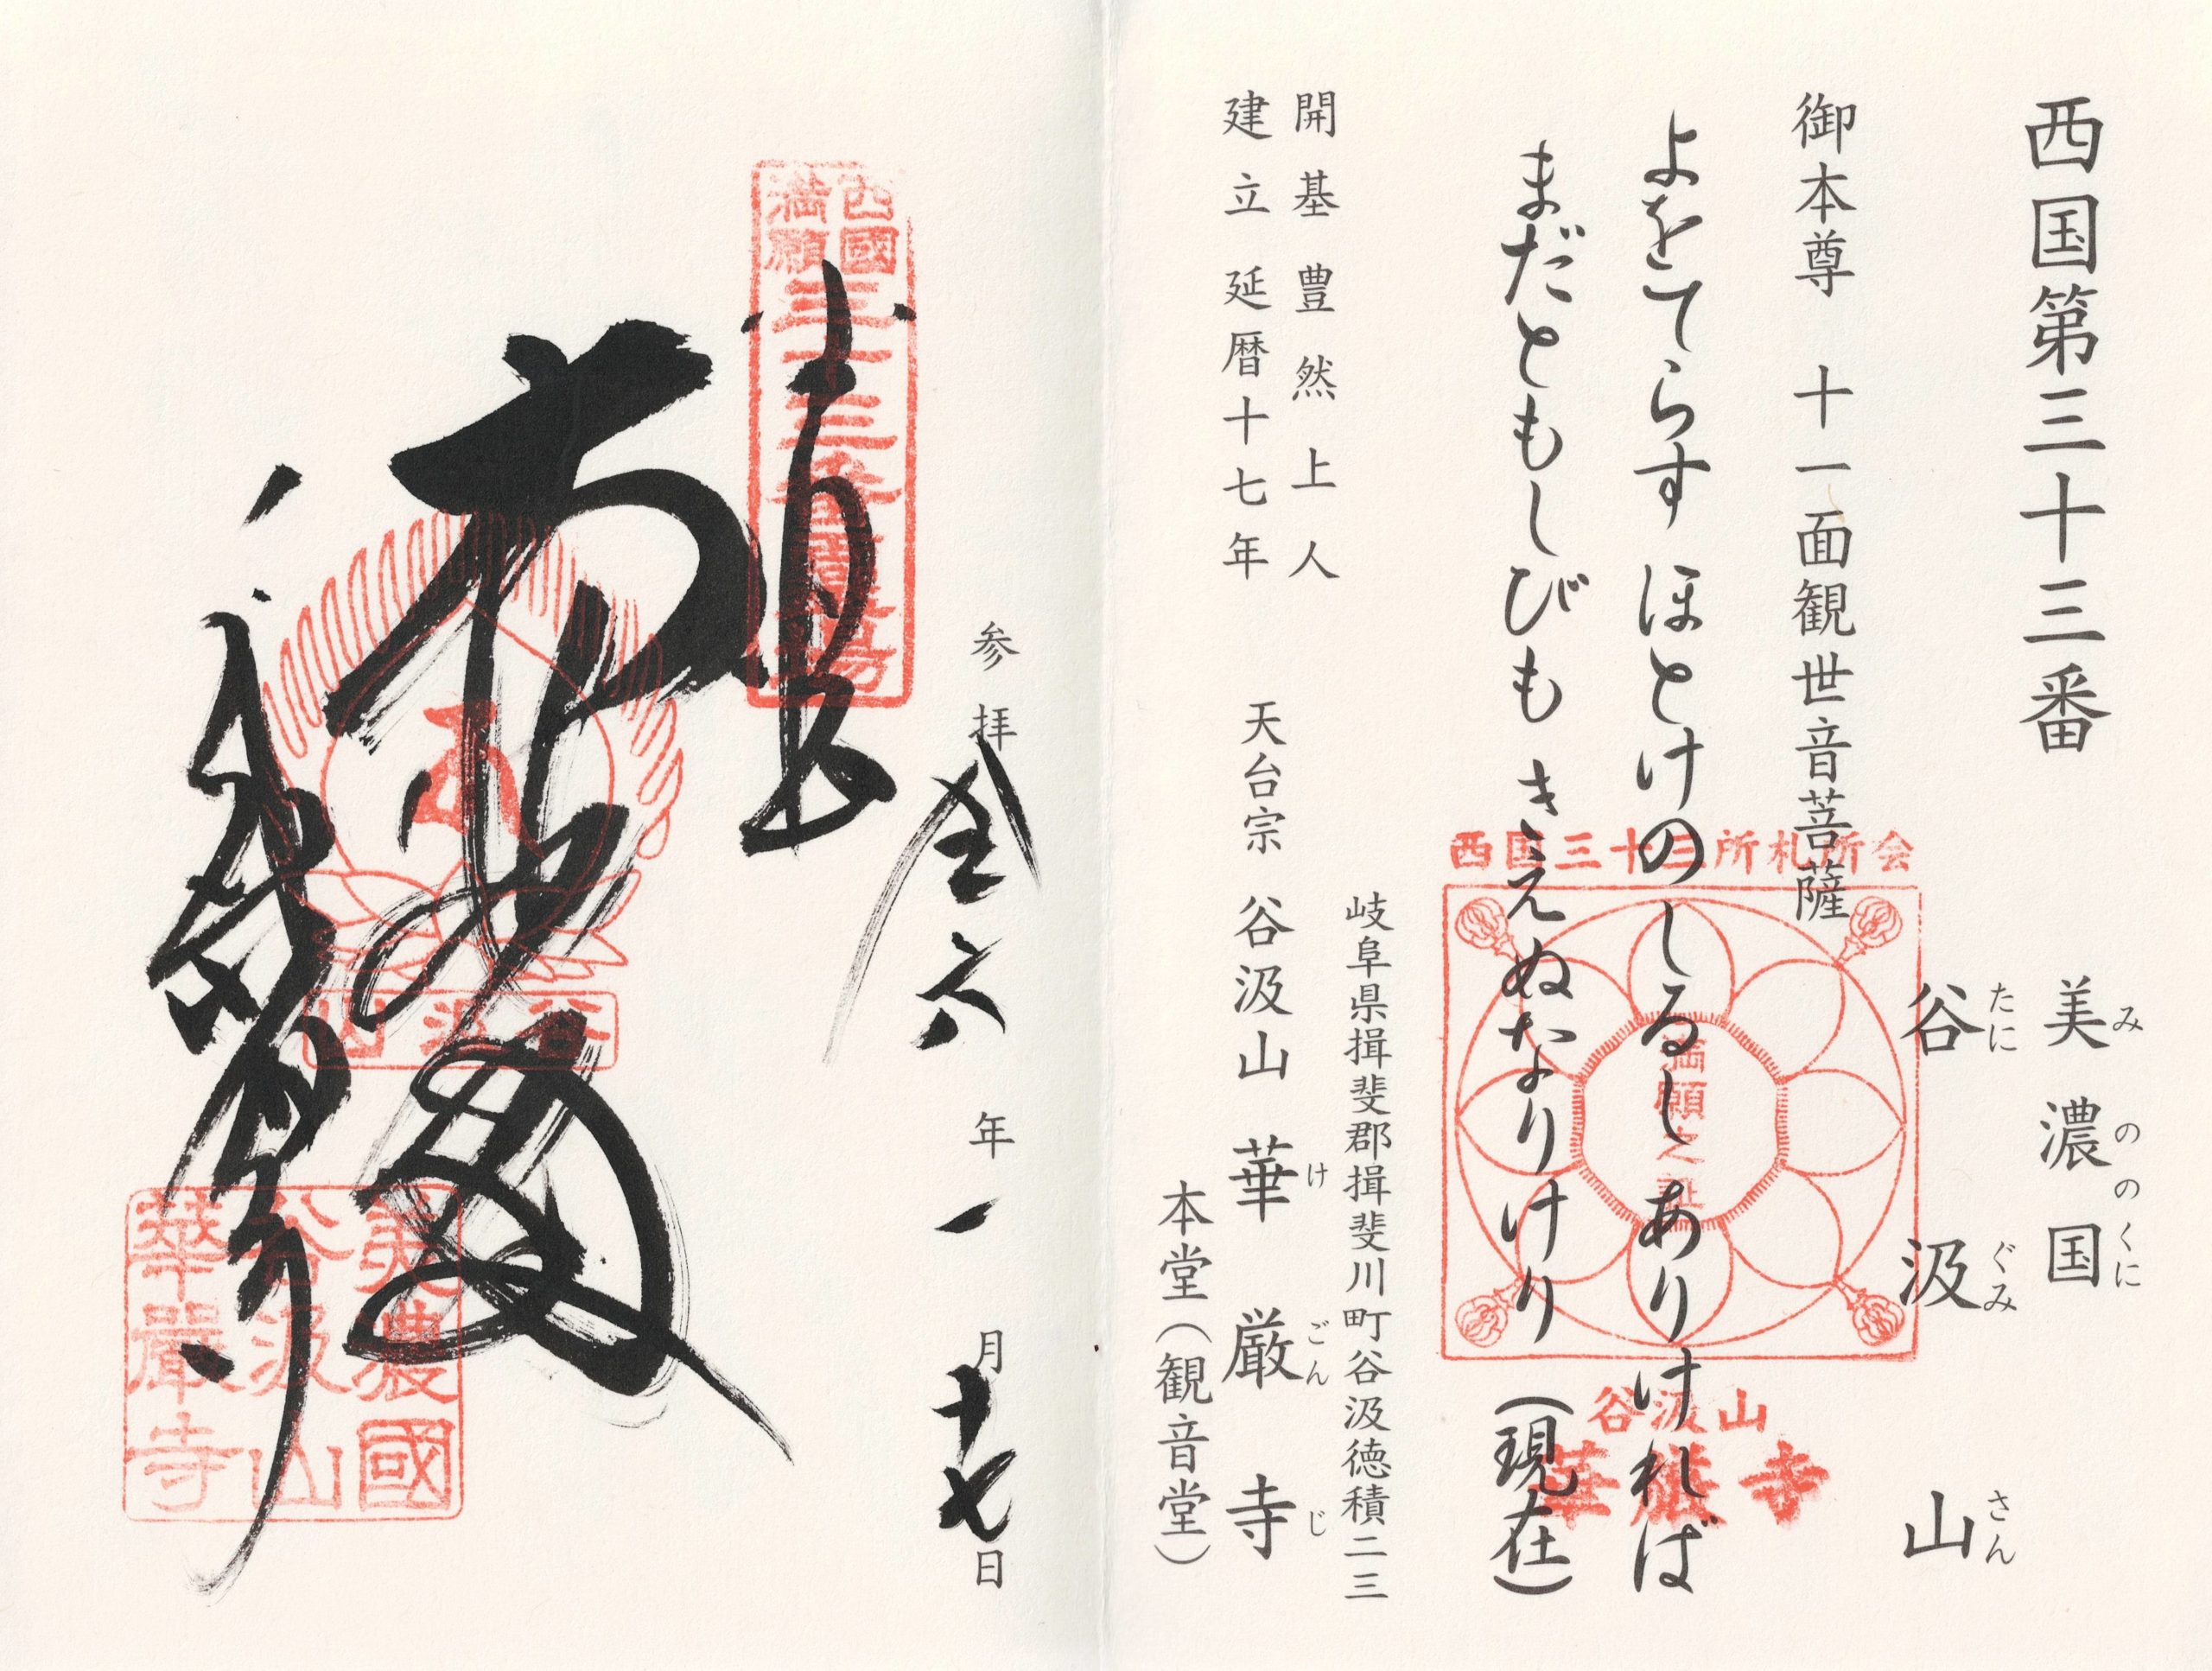 西国第三十三番
美濃国
みののくに
谷汲山
たにぐみさん
御本尊 十一面観世音菩薩
よをてらす ほとけのしるし ありければ
まだともしびも きえぬなりけり (現在)
岐阜県揖斐郡揖斐川町谷汲徳積二三
開基 豊然上人
建立 延暦十七年
天台宗 谷汲山 華厳寺
けごんじ
本堂(観音堂)
西国三十三所札所会
満願之証
谷汲山
華厳寺
参拝 令六年一月十七日
奉拝
西國
満願
三十三番霊場
谷汲山
美濃國
谷汲山
華嚴寺